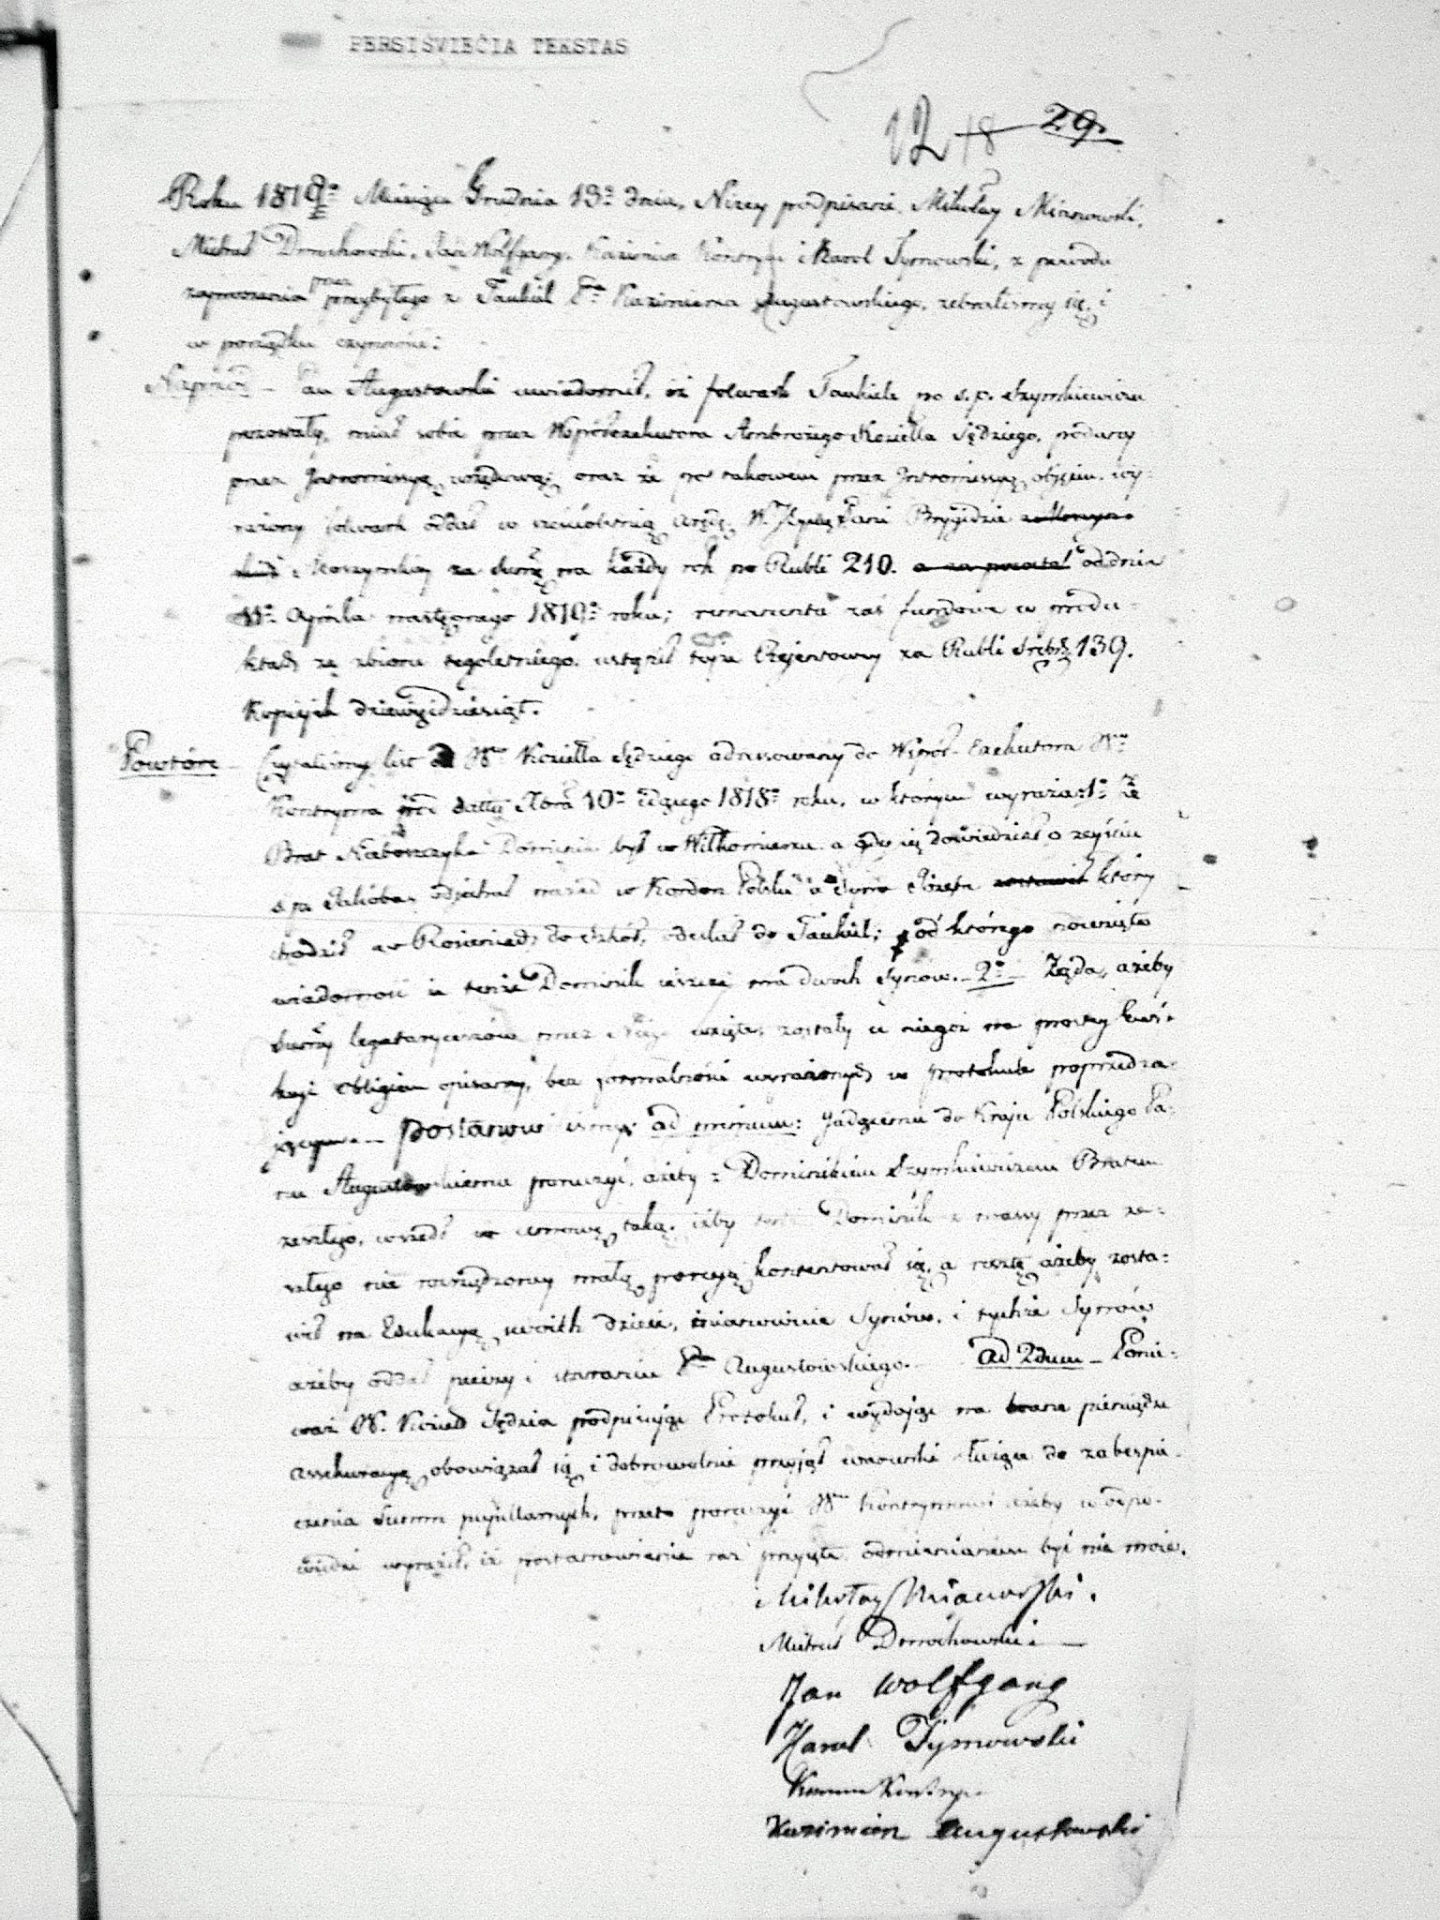 PERSIŠVIEČIA TEKSTAS
12 18 29.
Roku 1818º Miesiąca Grudnia 13º dnia, Niżey podpisani, Mikołay Mianowski,
Michał Dmochowski, Jan Wolfgang, Kazimierz Kontrym i Karol Tymowski, z powodu
zaproszenia przez przybyłego z Taukil Pna Kazimierza Augustowskiego, zebraliśmy się, i
w porządku czynności:
Naprzód – Pan Augustowski uwiadomił, iż folwark Taukile po s.p. Szymkiewiczu
pozostały, miał sobie przez Współexekutora Ambrożego Koziełła Sędziego, podany
przez Intromissyą urzędową; oraz że po takowem przez Intromissyą objęciu, wy-
rażony folwark oddał w sześcioletnią arędę W. Jmść Pani Brygidzie
Koszyńskiey za summę na każdy rok po Rubli 210. a za od dnia
Aprila 1819º roku; remanenta zaś fundowe w produ-
ktach ze zbioru tegoletniego, ustąpił teyże Rejentowey za Rubli srebr. 139.
Kopiejek dziewięćdziesiąt.
Powtóre – Czytaliśmy list od Wº Koziełła Sędziego adressowany do Współ-Exekutora Wº
Kontryma pod dattą 10º idącego 1818º roku, w którym wyraża: 1º Że
Brat Nieboszczyka Dominik był w Wiłkomierzu a gdy się dowiedział o zeyściu
s.p. Jakóba, odjechał nazad w Kordon Polski a Syna Józefa zostawił który
chodził w Rosieniach do szkół, odesłał do Taukil; od którego powzięto
wiadomość iż tenże Dominik jeszcze ma dwoch Synow. – 2º – Żąda, ażeby
summy legataryuszów przez Niego wzięte, zostały u niegoż na prosty
obligiem opisany, bez formalności wyrażonych w protokule poprzedza-
jącym. – Postanowiliśmy: ad primum: Jadącemu do Kraju Polskiego Pa-
nu Augustowskiemu poruczyć, ażeby z Dominikiem Szymkiewiczem Bratem
zeszłego, wszedł w umowę taką, iżby tenże Dominik z massy przez ze-
szłego nie rozrządzoney małą porcyą kontentował się, a resztę ażeby zosta-
wił na Edukacyą swoich dzieci, mianowicie Synów, i tychże Synów
ażeby oddał pieczy i staraniu Pna Augustowskiego. – Ad 2dum – Ponie-
waż W. Kozieł Sędzia podpisując Protokuł, i wydając na brane pieniądze
assekuracyą obowiązał się i dobrowolnie przyjął warunki służące do zabespie-
czenia Summ pupillarnych, przeto poruczyć Wº Kontrymowi ażeby w odpo-
wiedzi wyraził, iż postanowienie raz przyjęte odmienianem być nie może.
Mikołay Mianowski.
Michał Dmochowski –
Jan Wolfgang
Karol Tymowski
Kazimierz Kontrym
Kazimierz Augustowski